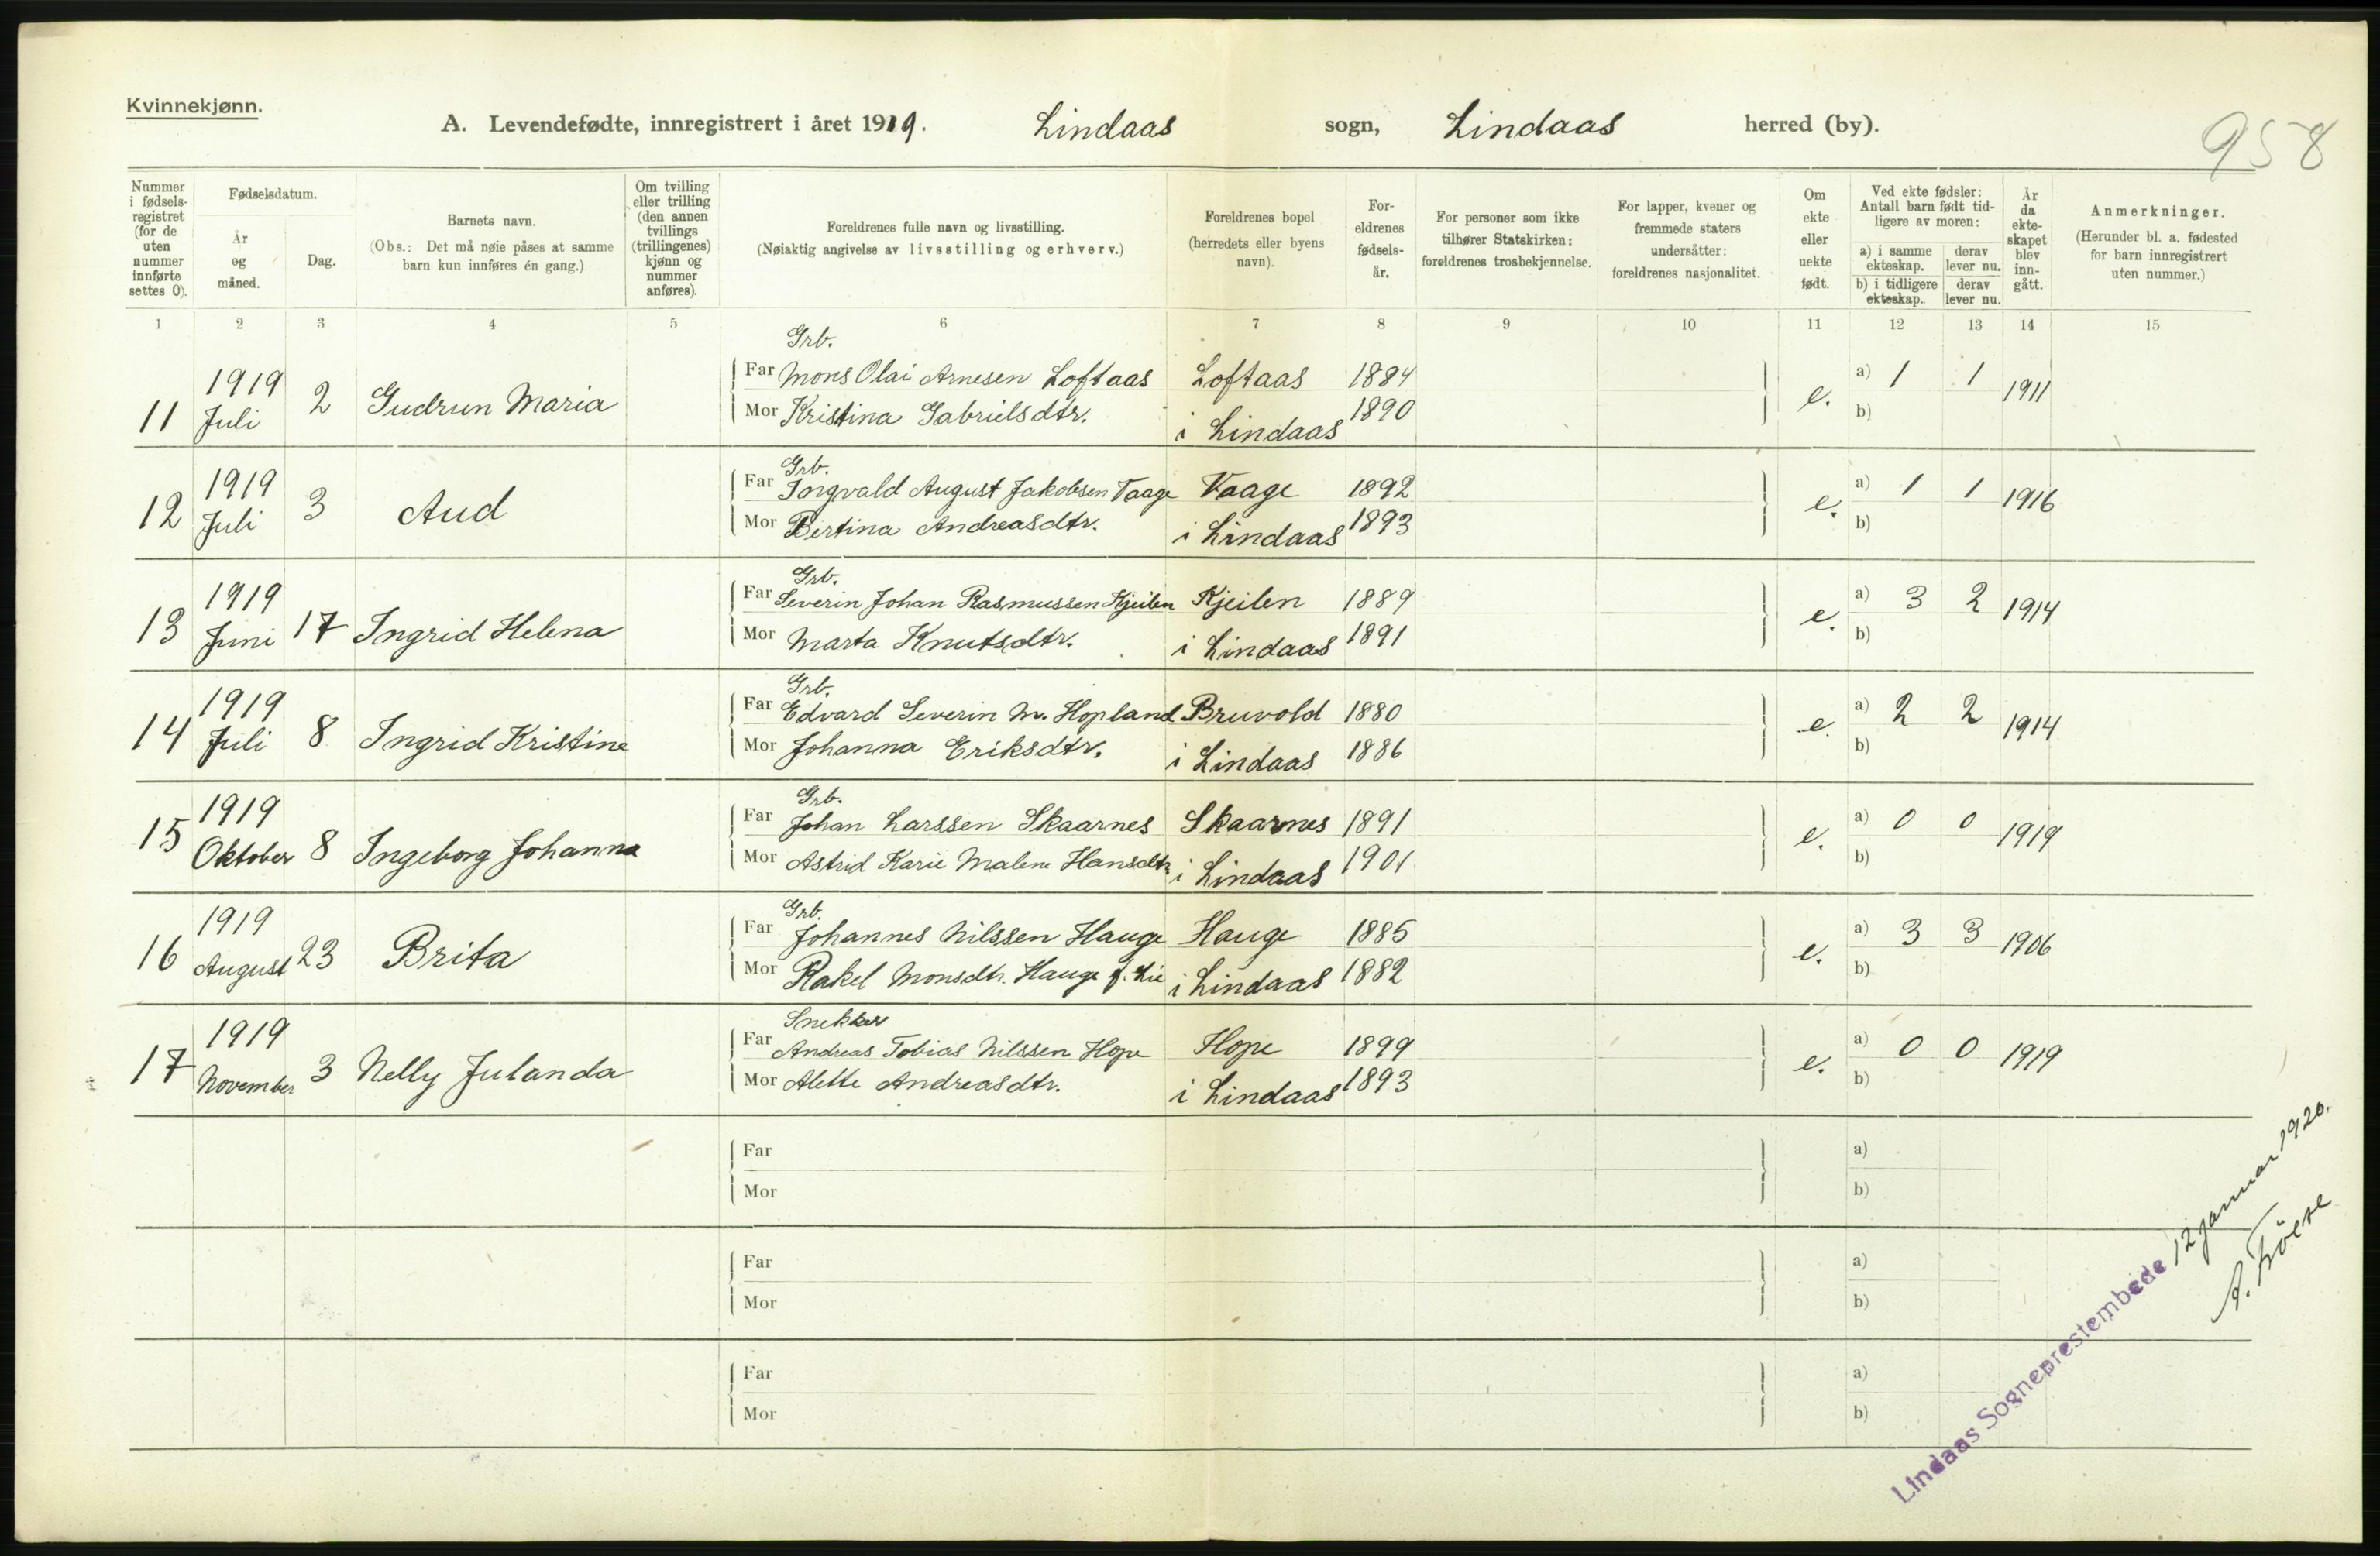 Kvinnekjønn.
A. Levendefødte, innregistrert i året 1919. Lindaas sogn, Lindaas herred (by).
958
Nummer i fødselsregistret (for de uten nummer innførte settes 0).
Fødselsdatum.
År og måned.
Dag.
Barnets navn.
(Obs.: Det må nøie påses at samme barn kun innføres én gang.)
Om tvilling eller trilling (den annen tvillings (trillingenes) kjønn og nummer anføres).
Foreldrenes fulle navn og livsstilling.
(Nøiaktig angivelse av livsstilling og erhverv.)
Foreldrenes bopel (herredets eller byens navn).
Foreldrenes fødselsår.
For personer som ikke tilhører Statskirken: foreldrenes trosbekjennelse.
For lapper, kvener og fremmede staters undersåtter: foreldrenes nasjonalitet.
Om ekte eller uekte født.
Ved ekte fødsler: Antall barn født tidligere av moren:
a) i samme ekteskap. derav lever nu.
b) i tidligere ekteskap. derav lever nu.
År da ekteskapet blev inngått.
Anmerkninger.
(Herunder bl. a. fødested for barn innregistrert uten nummer.)
1 2 3 4 5 6 7 8 9 10 11 12 13 14 15
Grb.
11 1919 Juli 2 Gudrun Maria Far Mons Olai Arnesen Loftaas Loftaas 1884 e. a) 1 1 1911
Mor Kristina Gabrielsdtr. i Lindaas 1890 b)
Grb.
12 1919 Juli 3 Aud Far Ingvald August Jakobsen Vaage Vaage 1892 e. a) 1 1 1916
Mor Bertina Andreasdtr. i Lindaas 1893 b)
Grb.
13 1919 Juni 17 Ingrid Helena Far Severin Johan Rasmussen Kjeilen Kjeilen 1889 e. a) 3 2 1914
Mor Marta Knutsdtr. i Lindaas 1891 b)
Grb.
14 1919 Juli 8 Ingrid Kristine Far Edvard Severin M. Hopland Bruvold 1880 e. a) 2 2 1914
Mor Johanna Eriksdtr. i Lindaas 1886 b)
Grb.
15 1919 Oktober 8 Ingeborg Johanna Far Johan Larssen Skaarnes Skaarnes 1891 e. a) 0 0 1919
Mor Astrid Karie Malene Hansdtr. i Lindaas 1901 b)
Grb.
16 1919 August 23 Brita Far Johannes Nilssen Hauge Hauge 1885 e. a) 3 3 1906
Mor Rakel Monsdtr. Hauge f. Lie i Lindaas 1882 b)
Snekker
17 1919 November 3 Nelly Julanda Far Andreas Tobias Nilssen Hope Hope 1899 e. a) 0 0 1919
Mor Alette Andreasdtr. i Lindaas 1893 b)
Far a)
Mor b)
Far a)
Mor b)
Far a)
Mor b)
Lindaas Sogneprestembede 12 januar 1920.